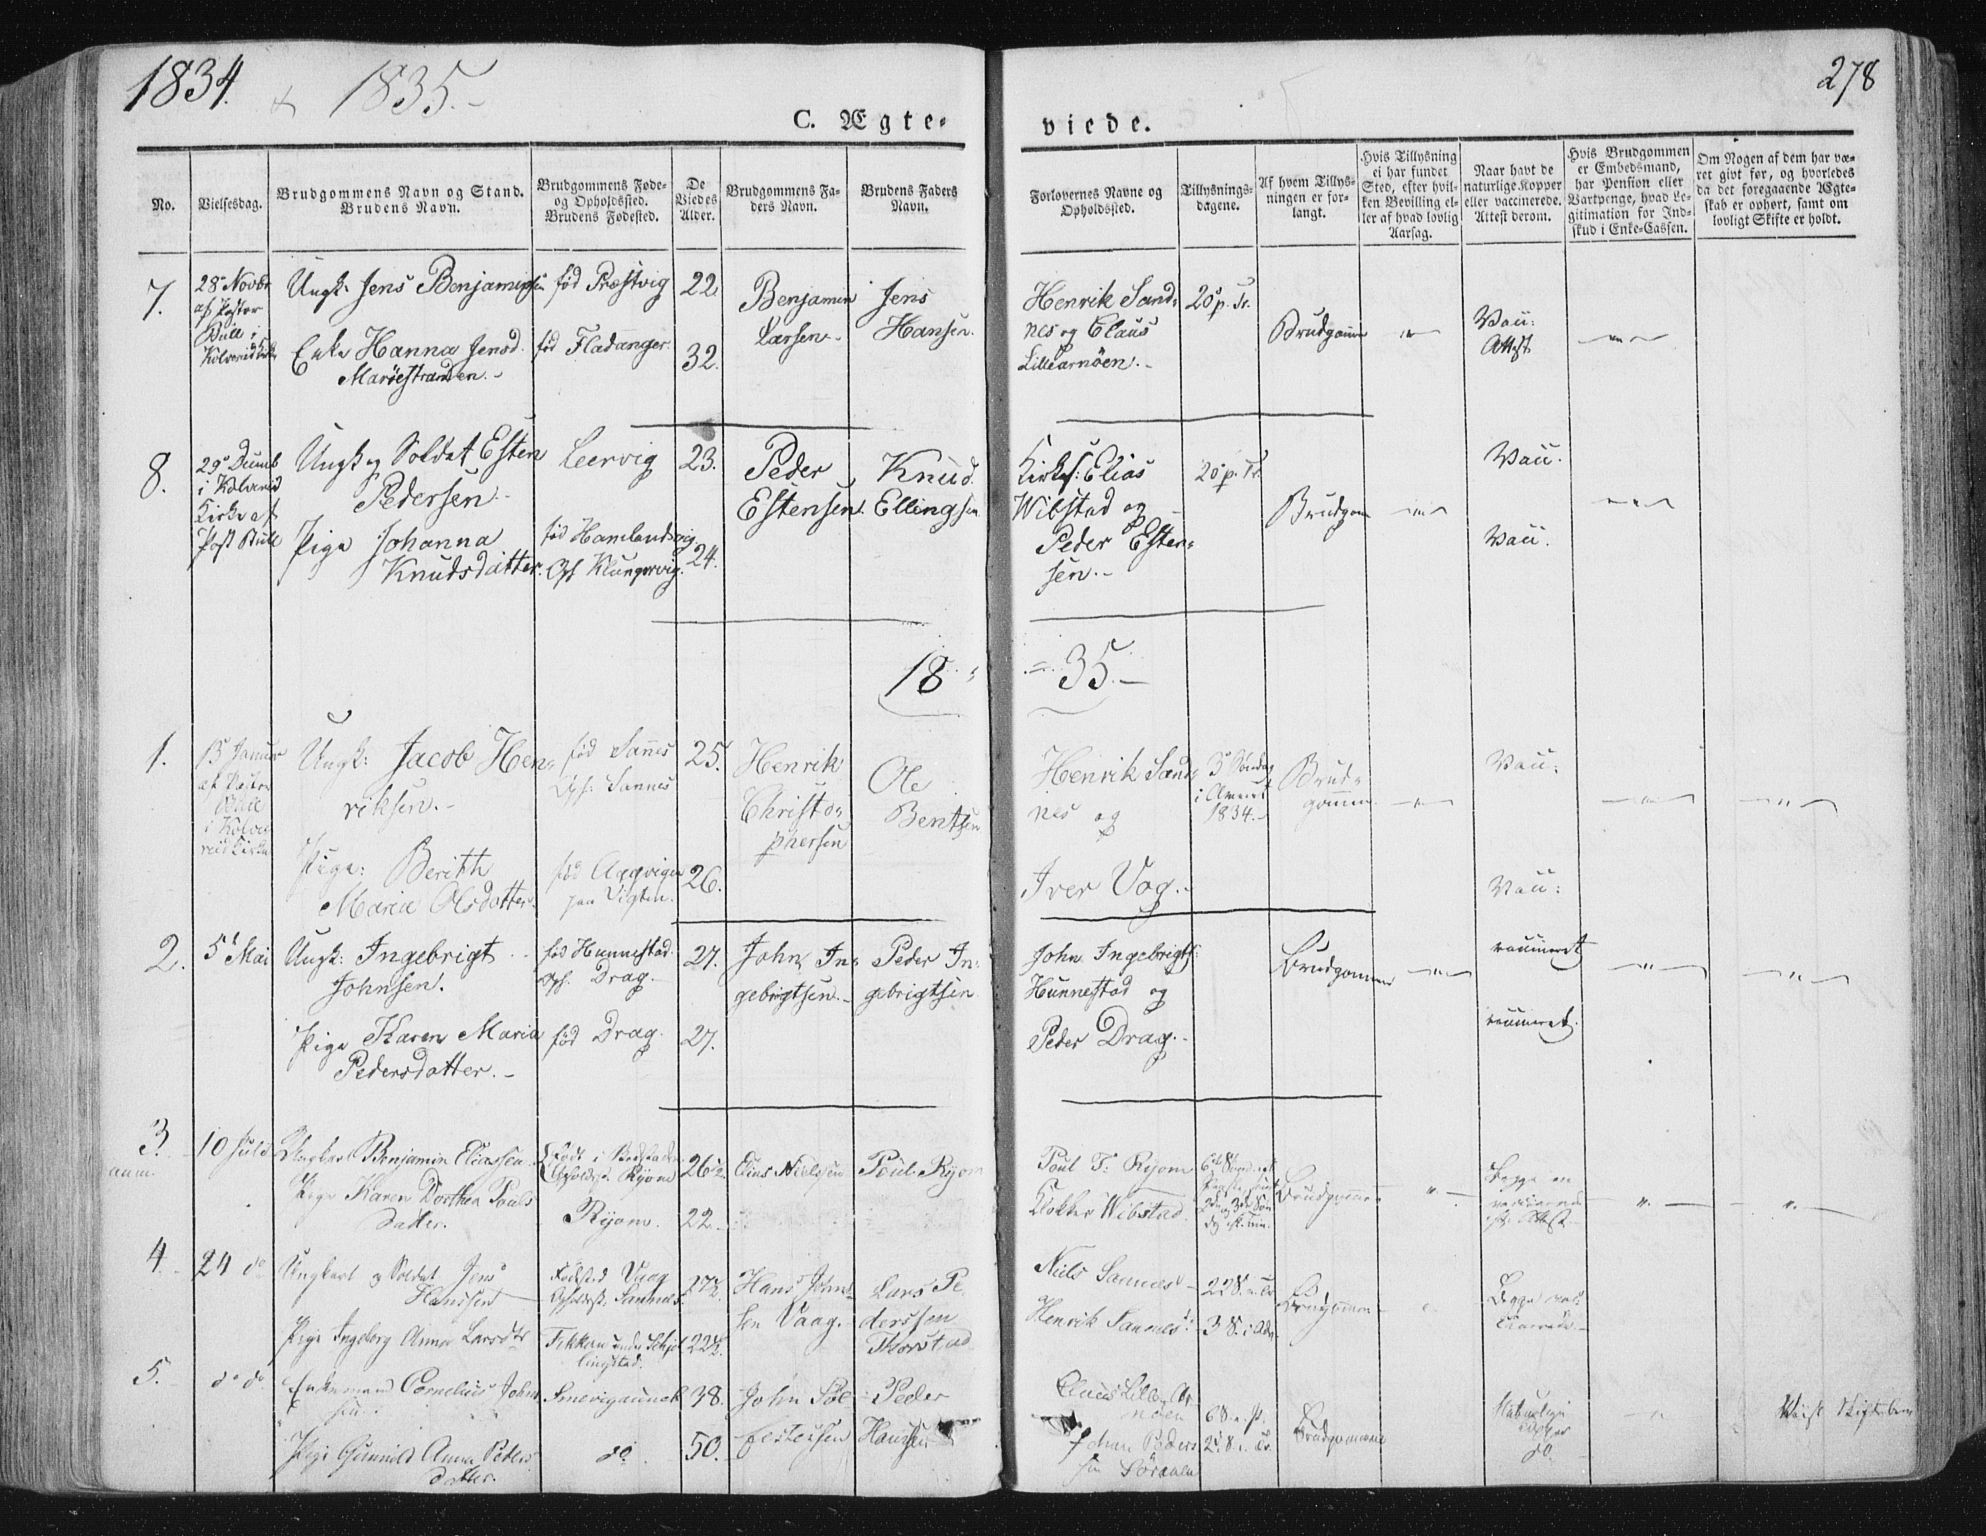 1834. & 1835.-
278
C. Ægte-
viede.
No.
Vielsesdag.
Brudgommens Navn og Stand.
Brudens Navn.
Brudgommens Føde-
og Opholdssted.
Brudens Fødested.
De
Viedes
Alder.
Brudgommens Fa-
ders Navn.
Brudens Faders
Navn.
Forlovernes Navne og
Opholdssted.
Tillysnings-
dagene.
Af hvem Tillys-
ningen er for-
langt.
Hvis Tillysning
ei har fundet
Sted, efter hvil-
ken Bevilling el-
ler af hvad lovlig
Aarsag.
Naar havt de
naturlige Kopper
eller vaccinerede.
Attest derom.
Hvis Brudgommen
er Embedsmand,
har Pension eller
Vartpenge, hvad Le-
gitimation for Ind-
skud i Enke-Cassen.
Om Nogen af dem har væ-
ret givt før, og hvorledes
da det foregaaende Ægte-
skab er ophørt, samt om
lovligt Skifte er holdt.
7.
28 Novbr
af Pastor
Bull i
Ungk. Jens Benjaminsen
Enke Hanna Jensd.
Marøestranden.-
fød Præstvig
fød Fladanger
22
32.
Benjamin
Larsen.
Jens
Hansen.
Henrik Sand-
nes og Claus
Lillearnöen.-
20 p. Tr.
Brudgomm
Vacc:
Attest
8.
29
i Kolvereid
Kirke af
Past Bull
Ungk og Soldat Esten
Pedersen.-
Pige Johanna
Knudsdatter.
Leervig
fød Hamlandsvig
Oph Klungervig.
23.
24.
Peder
Estensen.
Knud
Ellingsen
Kirkes: Elias
Wibstad og
Peder Esten-
sen.-
20 p. Tr.
Brudgom
Vacc.
Vacc.
18 = 35.-
1.
15 Januar
af Pastor
Bull
i Kolve
reid Kirke
Ungk: Jacob Hen-
riksen.-
Pige: Berith
Maria Olsdatter.
fød Sannes
Oph: Sannes
fød
paa Vigten.
25.
26.
Henrik
Christo-
phersen
Ole
Bentsen
Henrik Sand-
nes og
Iver Vog.-
3 Søndag
i Advent
1834.-
Brud-
gommen
Vacc:
Vacc:
2.
5 Mai
Ungk: Ingebrigt
Johnsen.
Pige Karen Maria
Pedersdatter.-
fød Hunnestad.
Oph. Drag.
fød Drag.
27.
27.
John In-
gebrigtsen.-
Peder In-
gebrigtsen
John Ingebrigts:
Hunnestad og
Peder Drag.-
Brudgommen
vaccineret
vaccineret.
3.
10 Juli
Ungkarl Benjamin Eliassen
Pige Karen Dorthea Pouls
datter.
Født i
Opholdsst. Ryom
Ryom.
26
22.
Elias Nielssen
Poul Ryom
Poul T: Ryom
Klokker Wibstad
Brudgommen
Begge
Attest
4.
24 do
Ungkarl og Soldat Jens
Hanssen
Pige Ingeborg Anna Larsdtr
Fødested Vaag
Opholdsst: Sannes.
27½
22½
Hans John-
sen Vaag.
Lars Pe
derssen
Thorstad
Niels Sannes
Henrik Sannes:
Brudgommen
Begge
5.
do do
Enkemand Cornelius Johns
sen
Pige Gunnild Anna Peders
datter.
do
38.
50.
John
Peder
Hanssen
Claus Lille Ar
nöen
Johan Peders
sen
Brudgommen
Naturlige
Kopper
do.